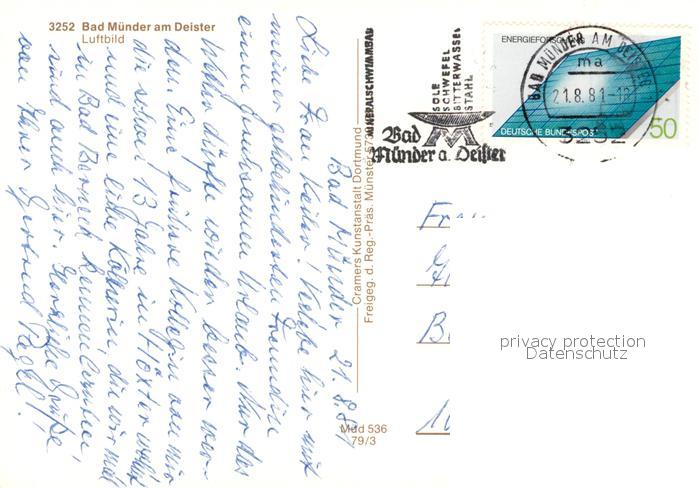 3252 Bad Münder am Deister
Luftbild
MINERALSCHWIMMBAD
SOLE
SCHWEFEL
BITTERWASSER
STAHL
Bad
Münder a. Deister
ENERGIEFORSCHUNG
DEUTSCHE BUNDESPOST
50
BAD MÜNDER AM DEISTER
ma
21.8.81-18
3252
Cramers Kunstanstalt Dortmund
Freigeg. d. Reg.-Präs. Münster
Müd 536
79/3
Bad Münder 21.8.81
Liebe Frau Keiler! Verlebe hier mit
meiner gehbehinderten Freundin
einen geruhsamen Urlaub. Nur das
Wetter dürfte wieder besser wer-
den. Eine frühere Kollegin von mir
die schon 13 Jahre in Höxter wohnt
und eine liebe Bekannte die wir mal
in Bad Berneck kennenlernten,
sind auch hier. Herzliche Grüße
von Ihrer Gertrud
Fr
B
privacy protection
Datenschutz